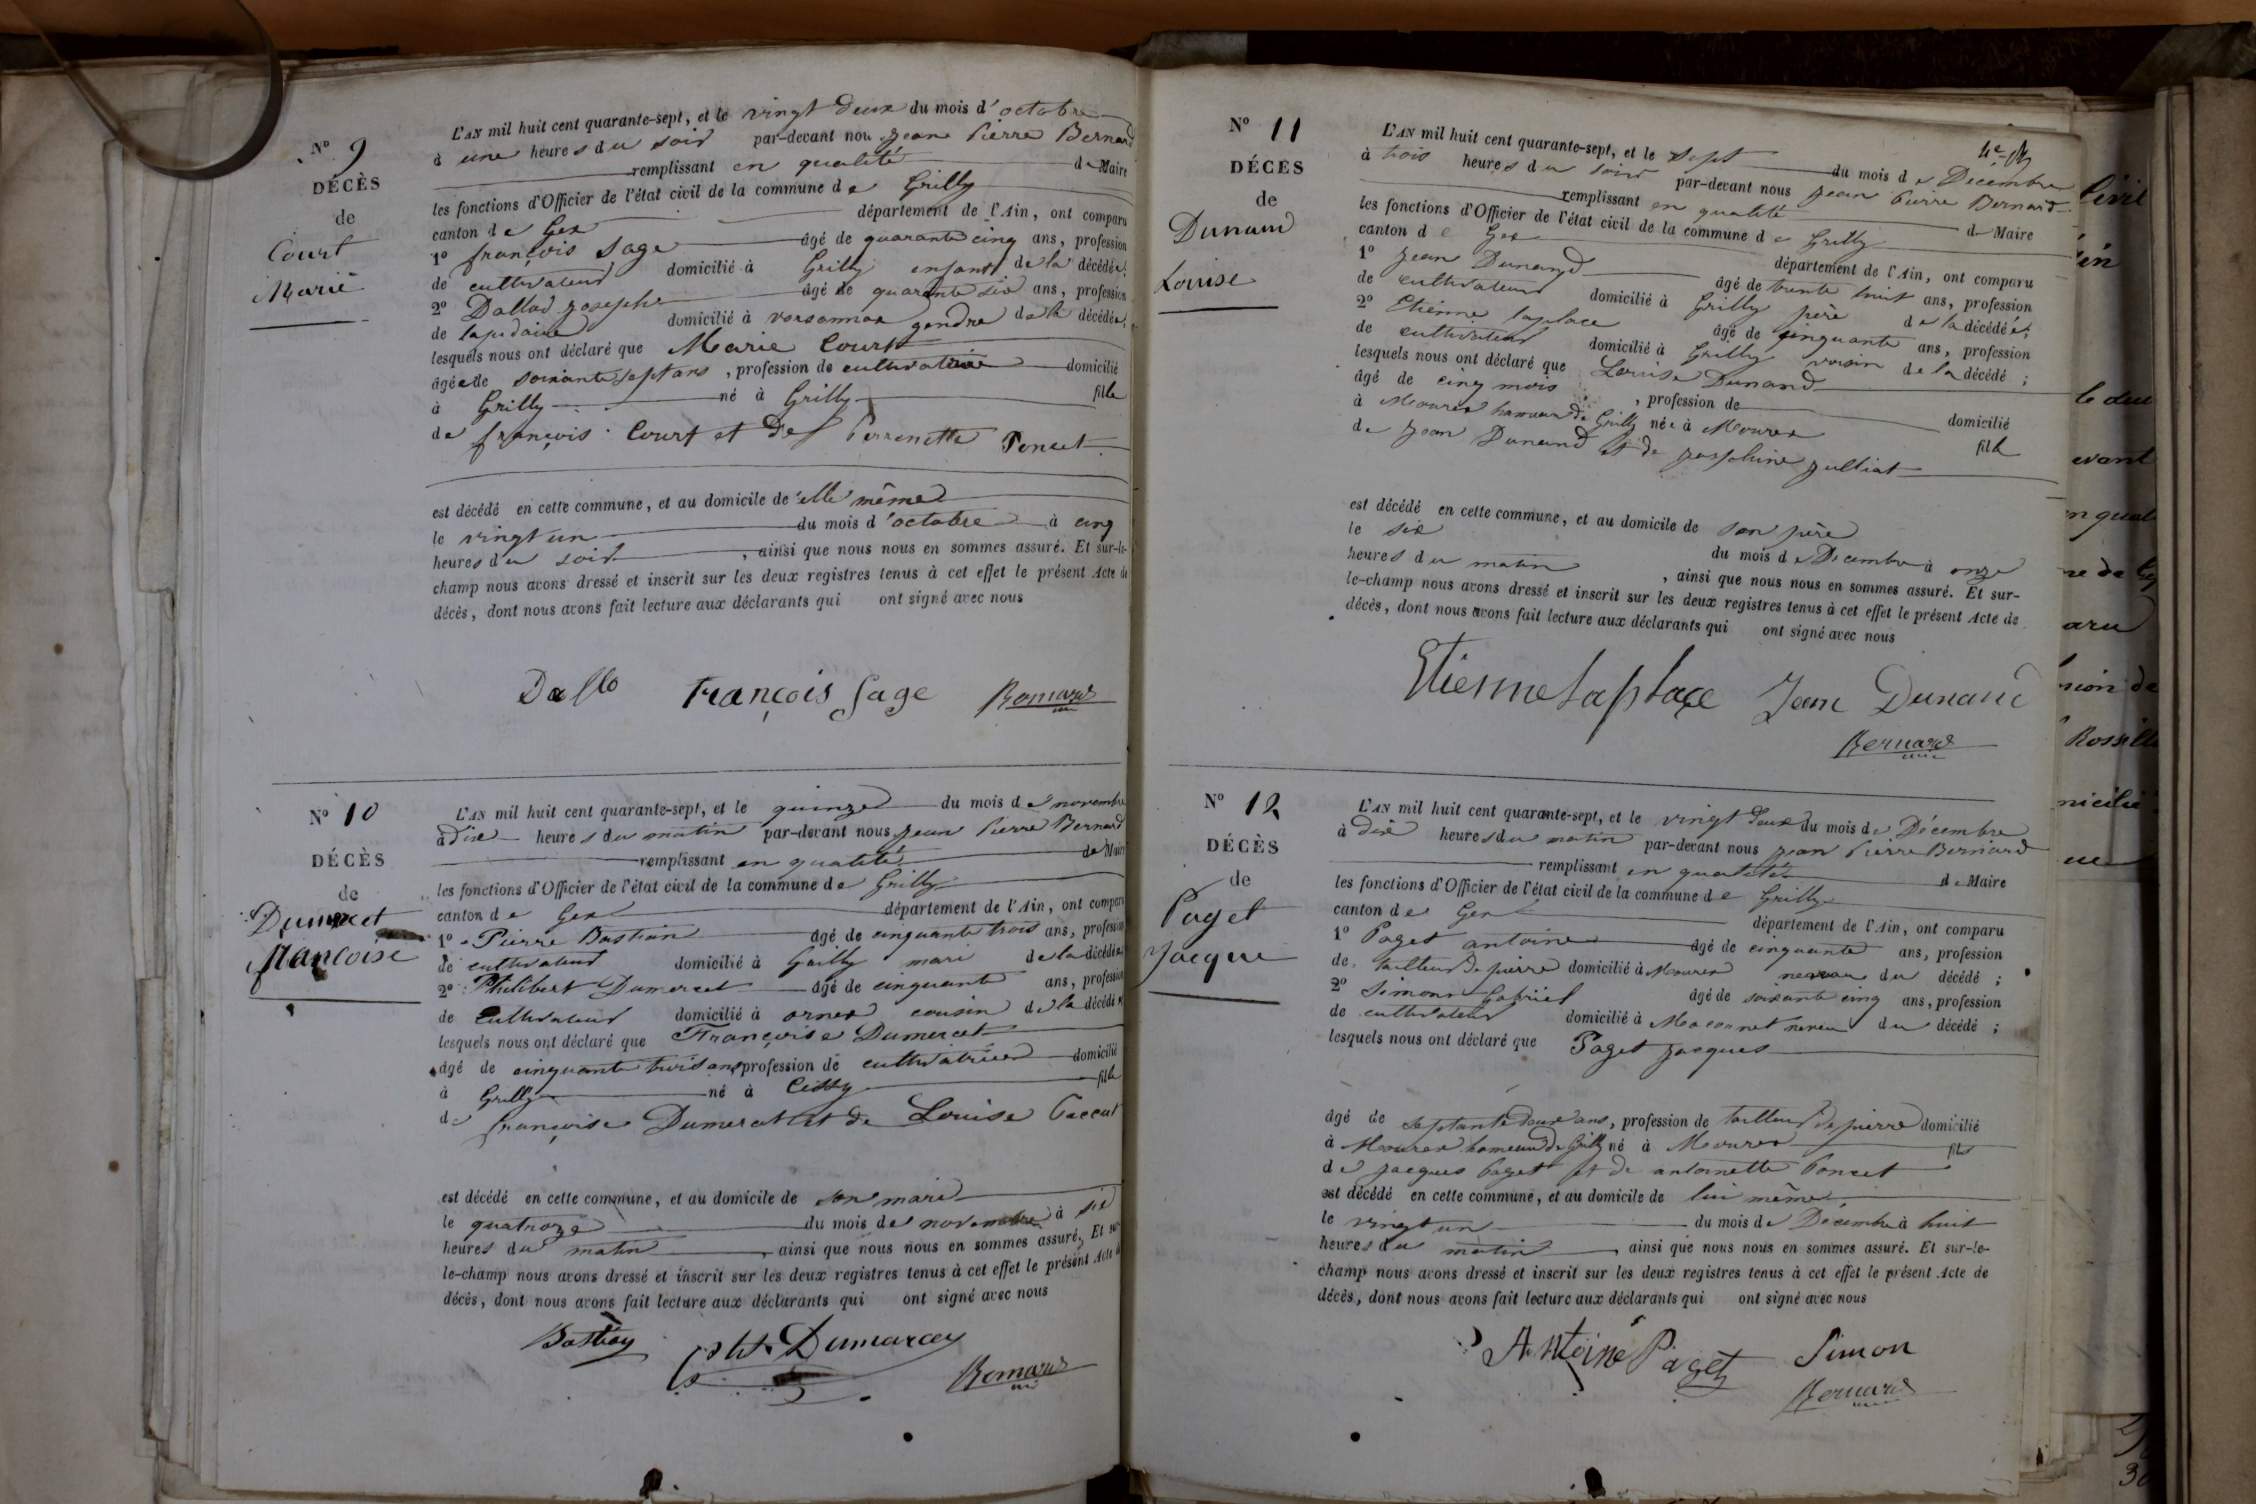 N° 9
DÉCÈS
de
Court
Marie
L'AN mil huit cent quarante-sept, et le vingt deux du mois d'octobre
à une heures du soir par-devant nou jean Pierre Bernard
remplissant en qualité de Maire
les fonctions d'Officier de l'état civil de la commune de Grilly
canton de Gex département de l'Ain, ont comparu
1° françois Sage âgé de quarante cinq ans, profession
de cultivateur domicilié à Grilly enfant de la décédée;
2° Dallod joseph âgé de quarante six ans, profession
de lapidaire domicilié à versonnex gendre de la décédée,
lesquels nous ont déclaré que Marie Court
âgée de soixante sept ans, profession de cultivatrice domicilié
à Grilly né à Grilly fille
de françois Court et de Perronette Poncet
est décédé en cette commune, et au domicile de elle même
le vingt un du mois d'octobre à cinq
heures du soir, ainsi que nous nous en sommes assuré. Et sur-le-
champ nous avons dressé et inscrit sur les deux registres tenus à cet effet le présent Acte de
décès, dont nous avons fait lecture aux déclarants qui ont signé avec nous
Dallo François Sage Bernard
N° 10
DÉCÈS
de
Dumercet
françoise
L'AN mil huit cent quarante-sept, et le quinze du mois de novembre
à dix heures du matin par-devant nous jean Pierre Bernard
remplissant en qualité de Maire
les fonctions d'Officier de l'état civil de la commune de Grilly
canton de Gex département de l'Ain, ont comparu
1° Pierre Bastian âgé de cinquante trois ans, profession
de cultivateur domicilié à Grilly mari de la décédée
2° Philibert Dumercet âgé de cinquante ans, profession
de cultivateur domicilié à ornex cousin de la décédée
lesquels nous ont déclaré que Françoise Dumercet
âgé de cinquante trois ans, profession de cultivatrice domicilié
à Grilly né à Cessy fille
de françoise Dumercet et de Louise Paccut
est décédé en cette commune, et au domicile de son mari
le quatorze du mois de novembre à six
heures du matin, ainsi que nous nous en sommes assuré. Et sur-
le-champ nous avons dressé et inscrit sur les deux registres tenus à cet effet le présent Acte de
décès, dont nous avons fait lecture aux déclarants qui ont signé avec nous
Bastian Dumarcey Bernard
N° 11
DÉCÈS
de
Dunand
Louise
L'AN mil huit cent quarante-sept, et le sept du mois de Decembre
à trois heures du soir par-devant nous jean Pierre Bernard
remplissant en qualité de Maire
les fonctions d'Officier de l'état civil de la commune de Grilly
canton de Gex département de l'Ain, ont comparu
1° jean Dunand âgé de trente huit ans, profession
de cultivateur domicilié à Grilly père de la décédée;
2° Etienne laplace âgé de cinquante ans, profession
de cultivateur domicilié à Grilly voisin de la décédé;
lesquels nous ont déclaré que Louise Dunand
âgé de cinq mois, profession de domicilié
à Mourex hameau de Grilly née à Mourex fille
de jean Dunand et de josephine julliat
est décédé en cette commune, et au domicile de son père
le six du mois de Decembre à onze
heures du matin, ainsi que nous nous en sommes assuré. Et sur-
le-champ nous avons dressé et inscrit sur les deux registres tenus à cet effet le présent Acte de
décès, dont nous avons fait lecture aux déclarants qui ont signé avec nous
Etienne Laplace Jean Dunand
Bernard
N° 12
DÉCÈS
de
Paget
Jacque
L'AN mil huit cent quarante-sept, et le vingt deux du mois de Décembre
à dix heures du matin par-devant nous jean Pierre Bernard
remplissant en qualité de Maire
les fonctions d'Officier de l'état civil de la commune de Grilly
canton de Gex département de l'Ain, ont comparu
1° Paget antoine âgé de cinquante ans, profession
de tailleur de pierre domicilié à Mourex neveu du décédé;
2° Simonn Gabriel âgé de soixante cinq ans, profession
de cultivateur domicilié à Maconnet neveu du décédé;
lesquels nous ont déclaré que Paget jacques
âgé de septante deux ans, profession de tailleur de pierre domicilié
à Mourex hameau de Grilly né à Mourex fils
de jacques Paget et de antoinette Poncet
est décédé en cette commune, et au domicile de lui même
le vingt un du mois de Décembre à huit
heures du matin, ainsi que nous nous en sommes assuré. Et sur-le-
champ nous avons dressé et inscrit sur les deux registres tenus à cet effet le présent Acte de
décès, dont nous avons fait lecture aux déclarants qui ont signé avec nous
Antoine Paget Simon
Bernard